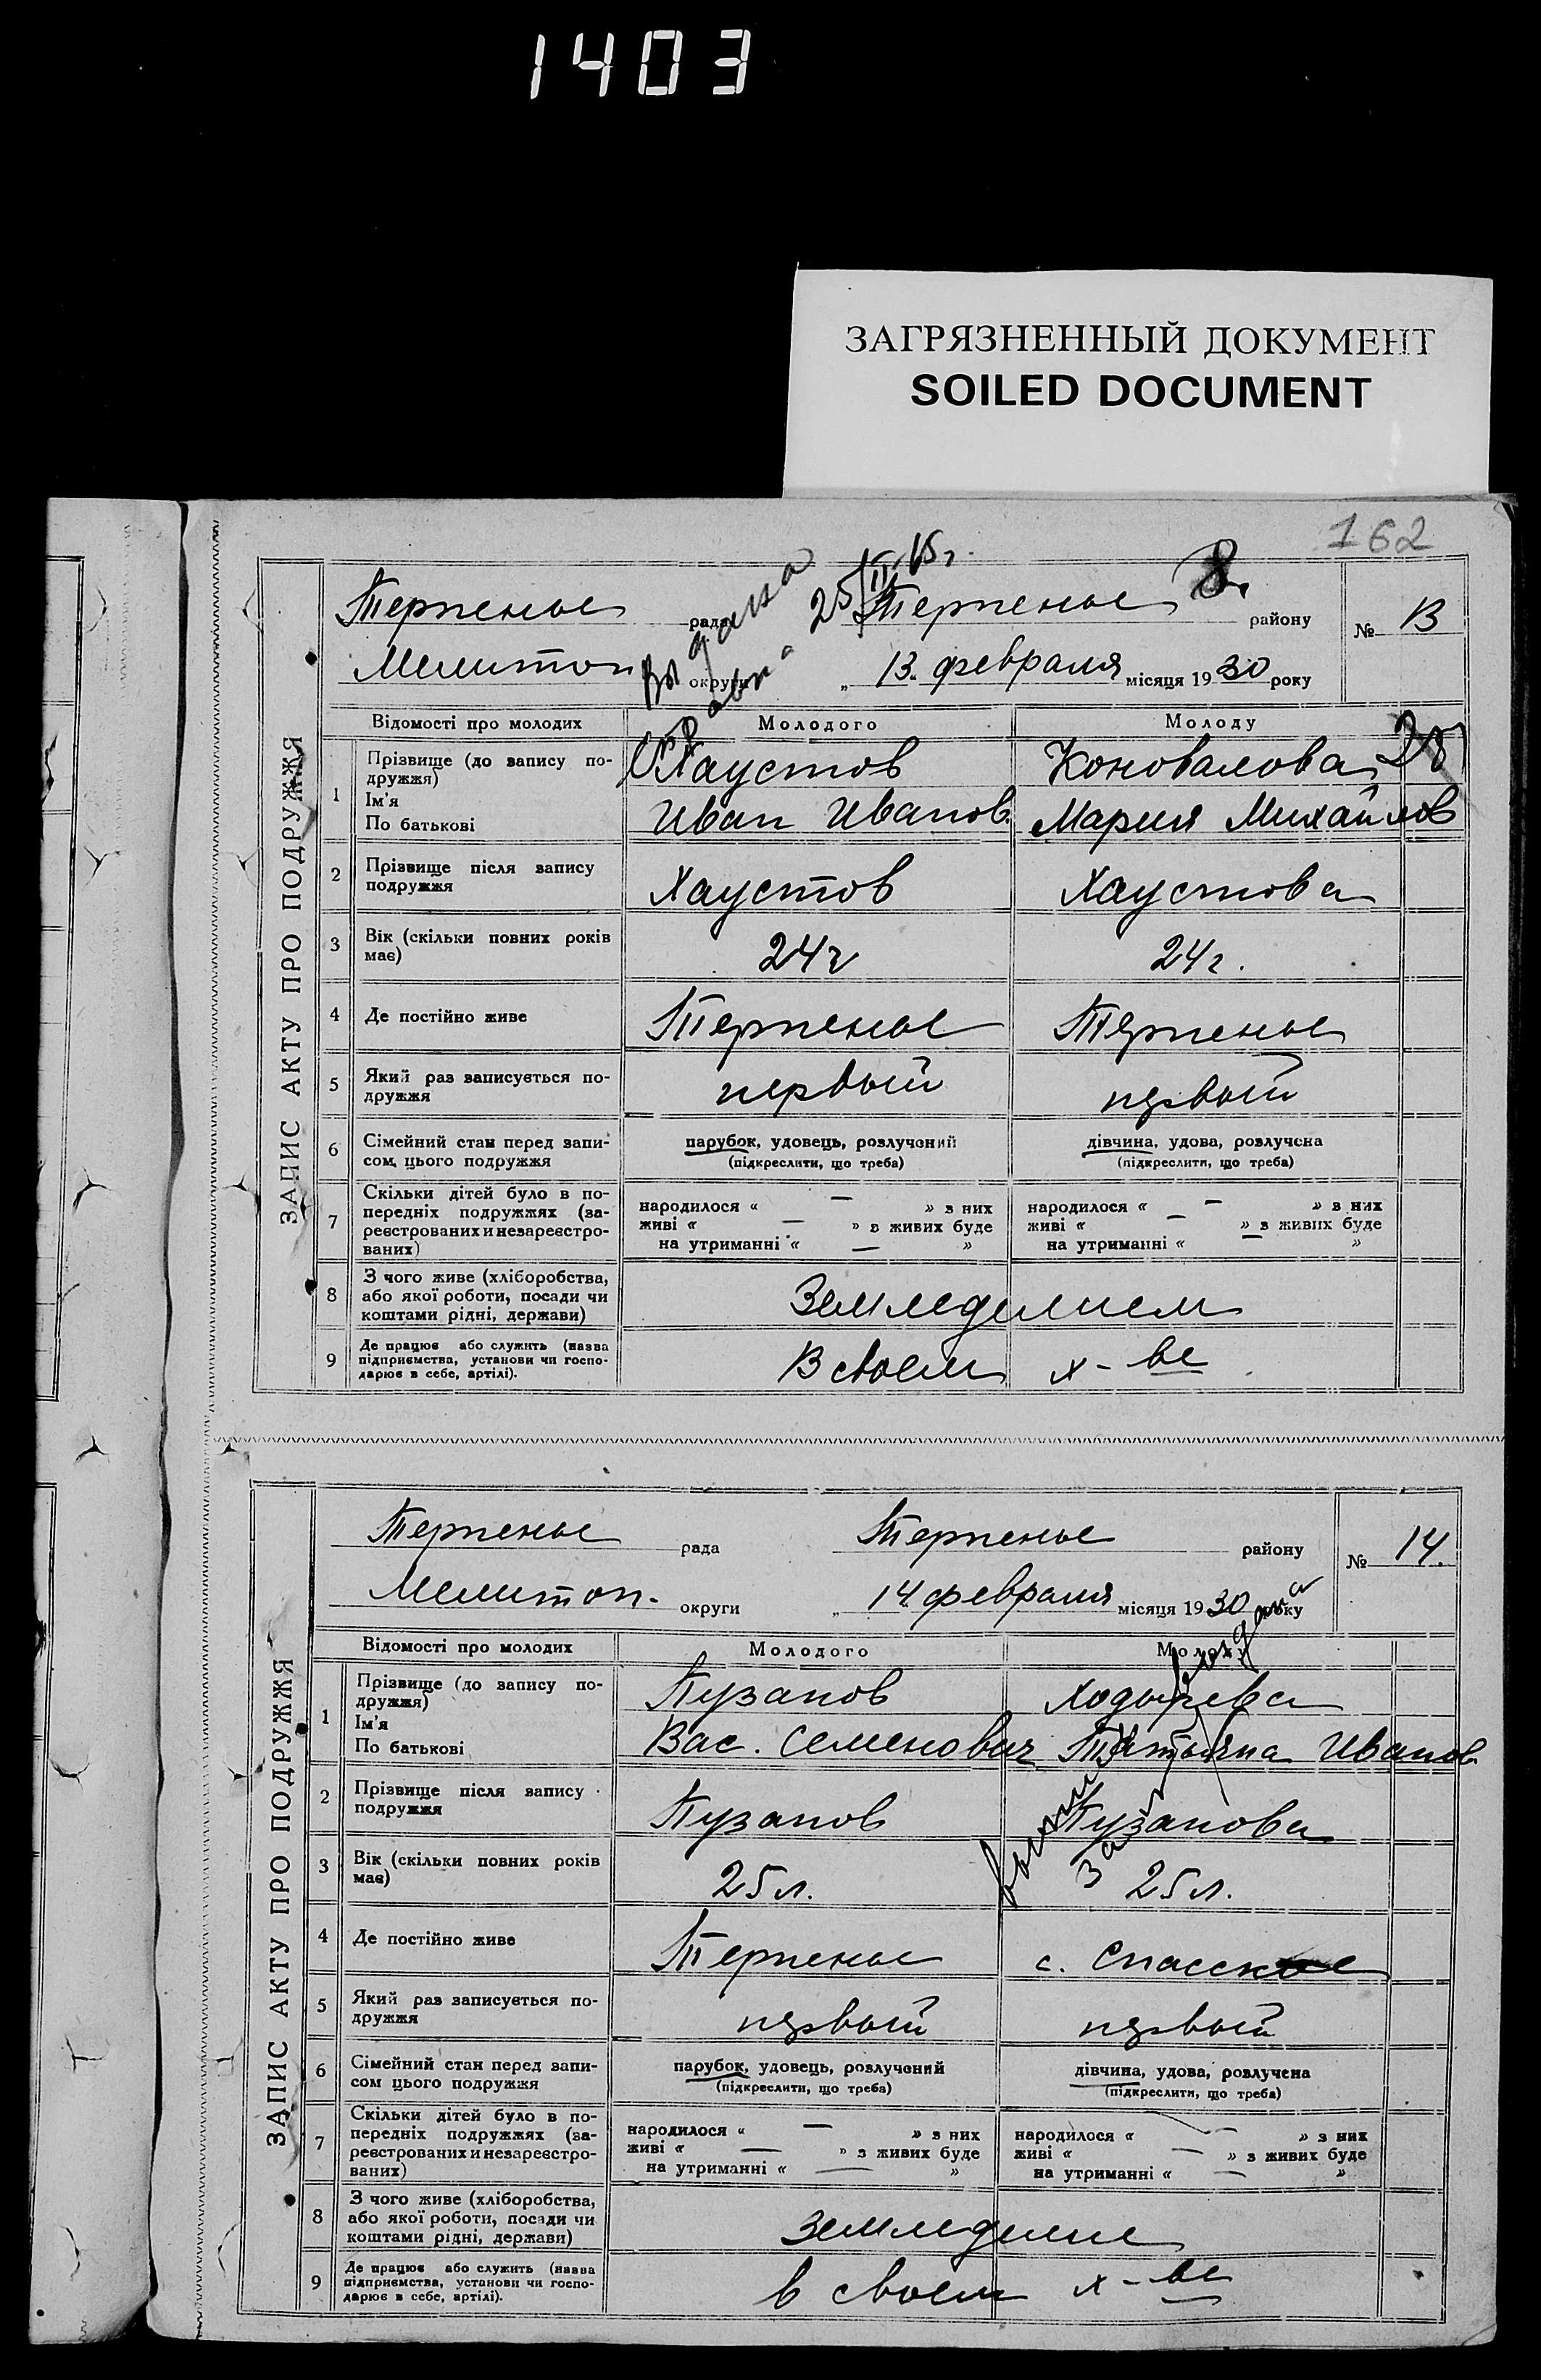 1403
ЗАГРЯЗНЕННЫЙ ДОКУМЕНТ
SOILED DOCUMENT
162
ЗАПИС АКТУ ПРО ПОДРУЖЖЯ
Терпенье рада Терпенье району № 13
Мелитоп округи „ 13 февраля місяця 1930 року
Выдана
справка 25/II-65г.
8
Відомості про молодих Молодого Молоду
1 Прізвище (до запису по-дружжя) Хаустов Коновалова
Ім'я
По батькові Иван Иванов. Мария Михайлов
2 Прізвище після запису подружжя Хаустов Хаустова
3 Вік (скільки повних років має) 24 г 24 г.
4 Де постійно живе Терпенье Терпенье
5 Який раз записується по-дружжя первый первый
6 Сімейний стан перед запи-сом цього подружжя парубок, удовець, розлучений (підкреслити, що треба) дівчина, удова, розлучена (підкреслити, що треба)
7 Скільки дітей було в по-передніх подружжях (за-реєстрованих и незареєстро-ваних) народилося « — » з них живі « — » в живих буде на утриманні « — » народилося « — » в них живі « — » з живих буде на утриманні « — »
8 З чого живе (хліборобства, або якої роботи, посади чи коштами рідні, держави) Земледелием
9 Де працює або служить (назва підприємства, установи чи госпо-дарює в себе, артілі). В своем х-ве
ЗАПИС АКТУ ПРО ПОДРУЖЖЯ
Терпенье рада Терпенье району № 14.
Мелитоп. округи „ 14 февраля місяця 1930 року
Відомості про молодих Молодого Молоду
1 Прізвище (до запису по-дружжя) Пузанов Ходырева
Ім'я
По батькові Вас. Семенович Татьяна Иванов.
2 Прізвище після запису подружжя Пузанов Пузанова
3 Вік (скільки повних років має) 25 л. 25 л.
4 Де постійно живе Терпенье с. Спасское
5 Який раз записується по-дружжя первый первый
6 Сімейний стан перед запи-сом цього подружжя парубок, удовець, розлучений (підкреслити, що треба) дівчина, удова, розлучена (підкреслити, що треба)
7 Скільки дітей було в по-передніх подружжях (за-реєстрованих и незареєстро-ваних) народилося « — » з них живі « — » з живих буде на утриманні « — » народилося « — » з них живі « — » з живих буде на утриманні « — »
8 З чого живе (хліборобства, або якої роботи, посади чи коштами рідні, держави) Земледелие
9 Де працює або служить (назва підприємства, установи чи госпо-дарює в себе, артілі). в своем х-ве